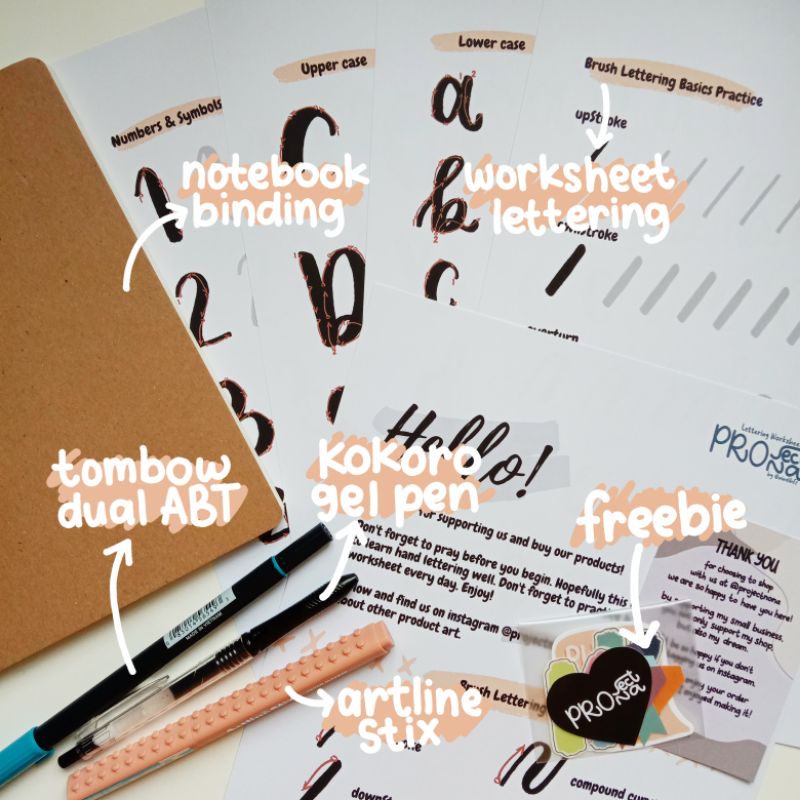 Numbers & Symbols
Upper case
Lower case
Brush Lettering Basics Practice
upstroke
notebook
binding
worksheet
lettering
1
2
3
a
b
c
overturn
Hello!
Lettering Worksheet
PROJECT
NONA
tombow
dual ABT
kokoro
gel pen
freebie
for supporting us and buy our products!
Don't forget to pray before you begin. Hopefully this
to learn hand lettering well. Don't forget to
worksheet every day. Enjoy!
and find us on instagram
about other product art.
THANK YOU
for choosing to shop
with us at @projectnona
we are so happy to have you here!
by supporting my small business,
only support my shop,
but also my dream.
be so happy if you don't
on instagram.
enjoy your order
enjoyed making it!
MADE IN VIETNAM
artline
stix
Brush Lettering
compound